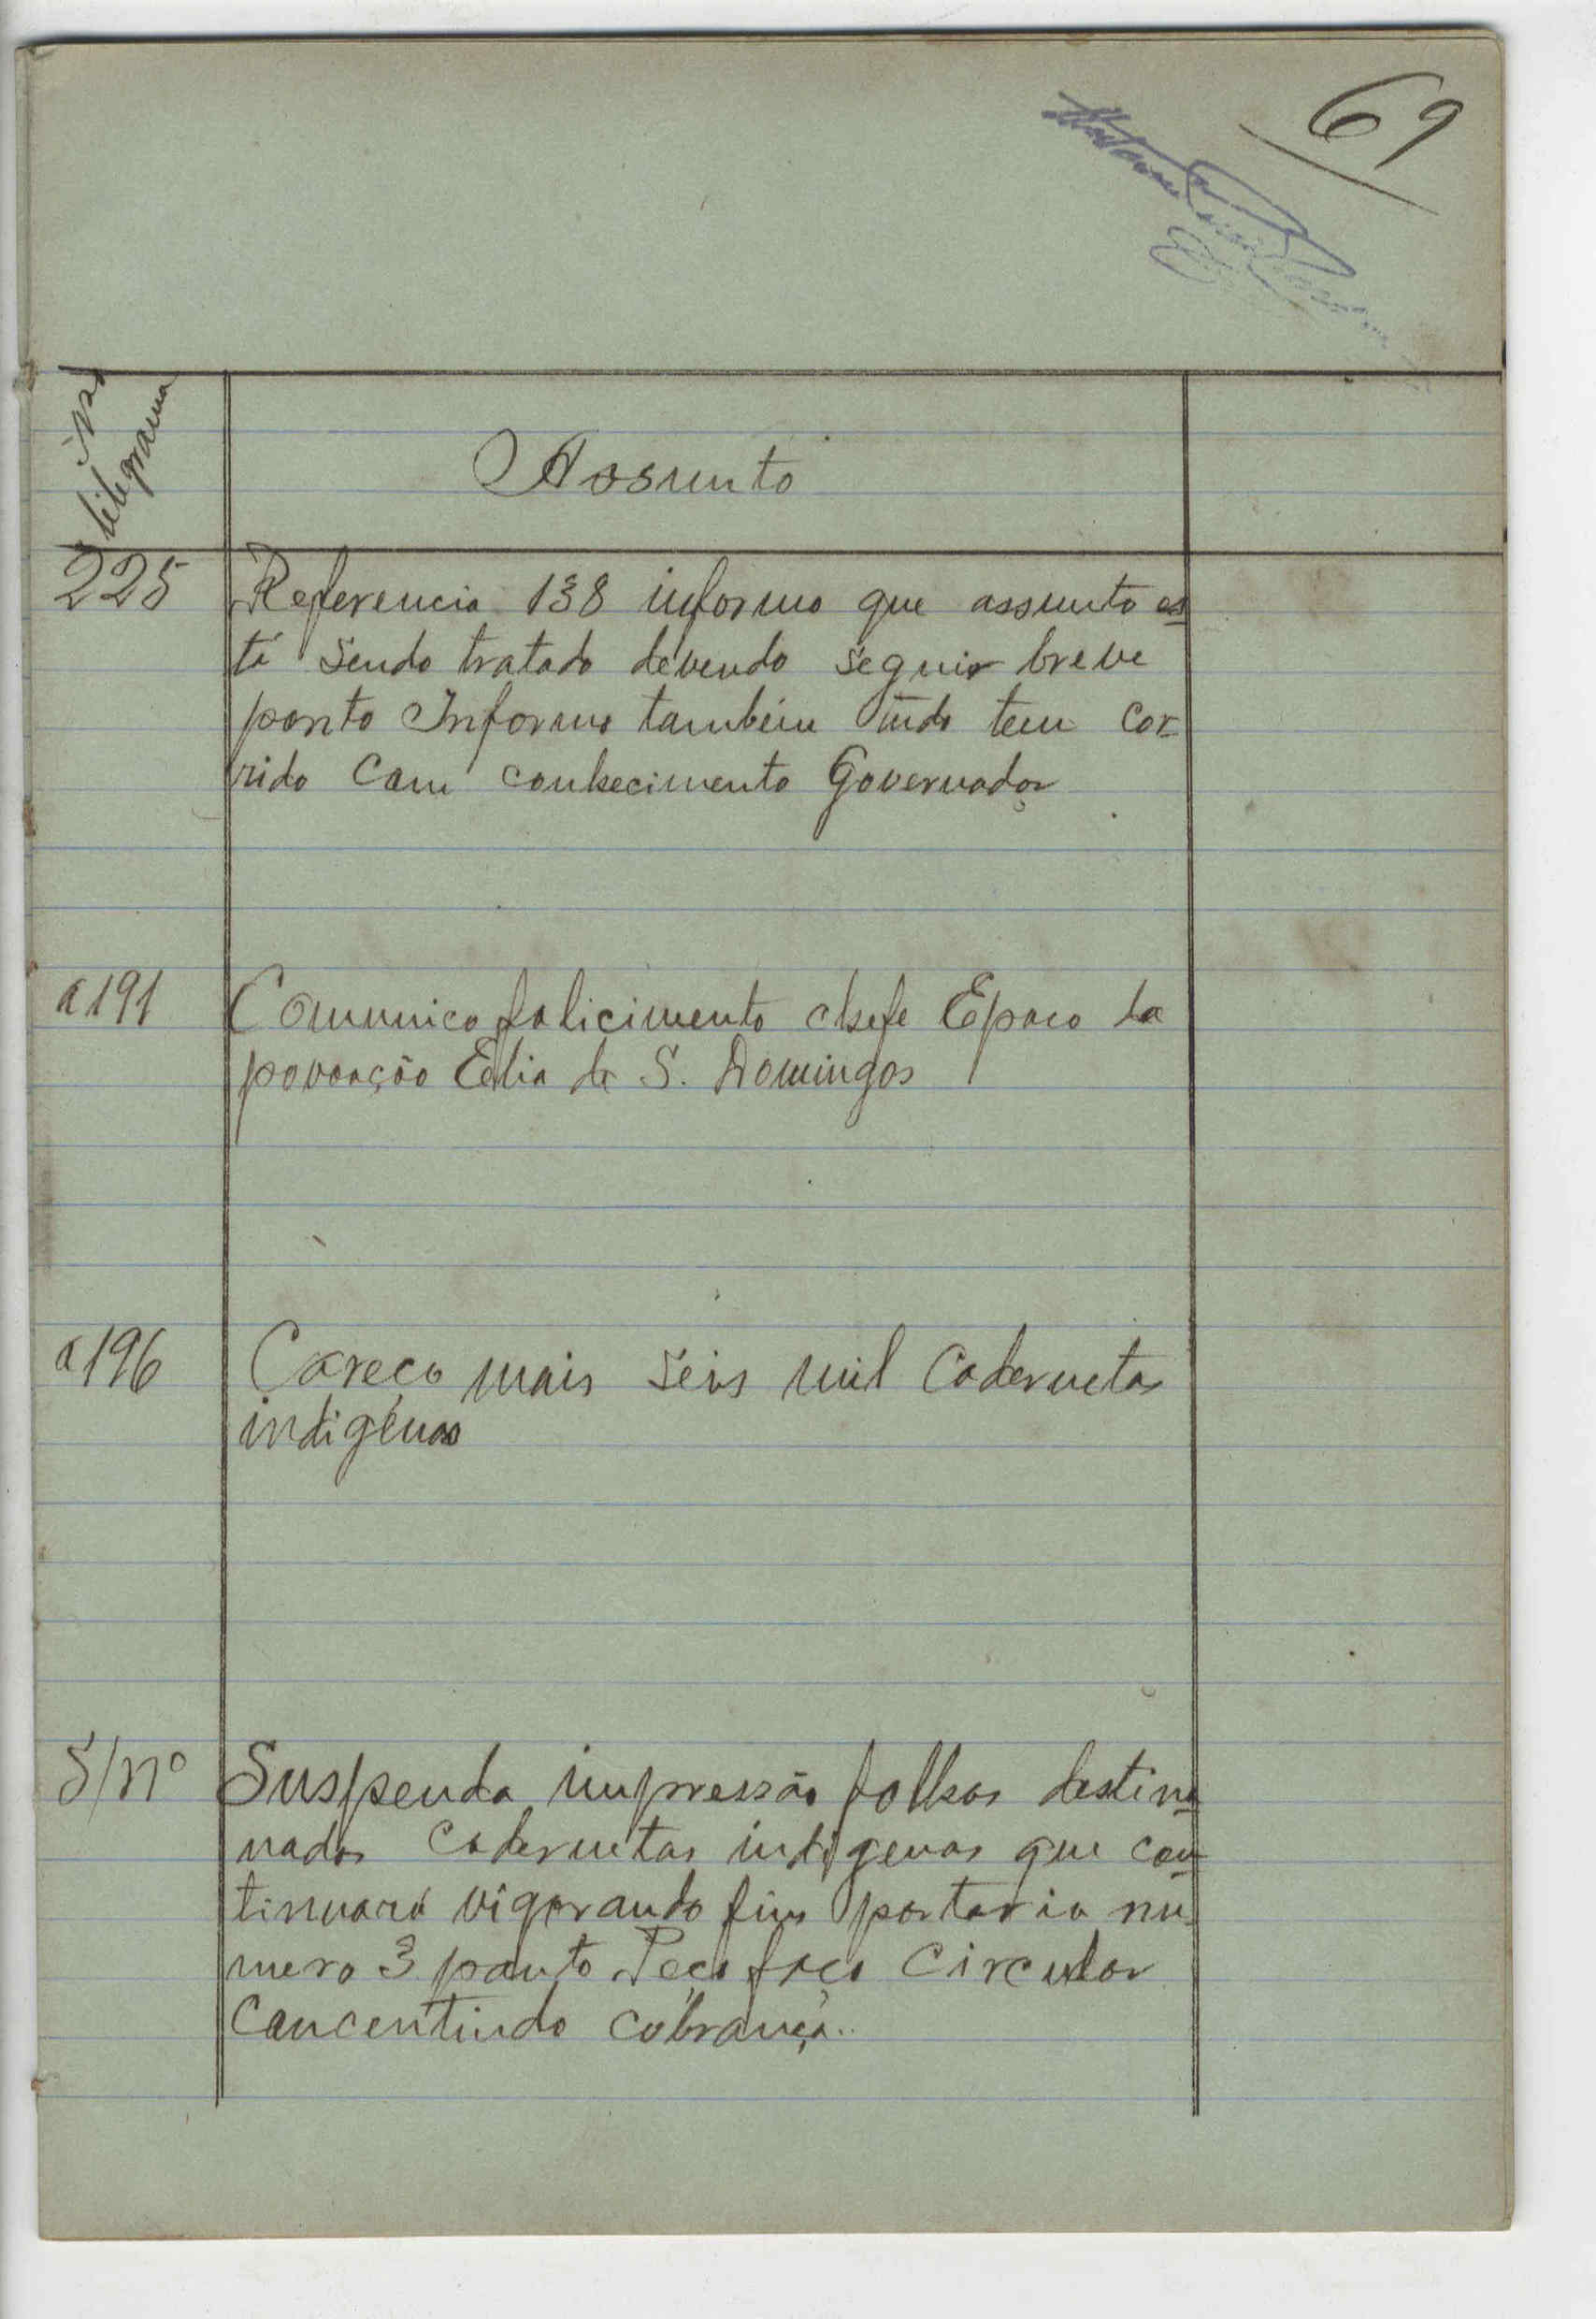 69
Nº telegrama
Assunto
225 Referencia 138 informo que assunto es
tá sendo tratado devendo seguir breve
ponto Informo também tudo tem cor
rido com conhecimento Governador
a 191 Comunico falicimento chefe Epaco da
povoação Edia de S. Domingos
a 196 Careço mais seis mil cadernetas
indigénas
S/nº Suspenda impressão folhas destina
nadas cadernetas indigenas que con
tinuará vigorando fins portaria nu
mero 3 ponto Peço faça circular
concentindo cobrança..